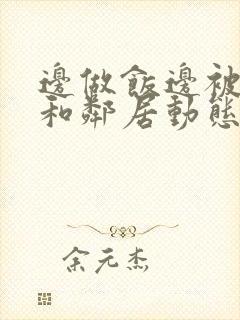 邊做飯邊被
和鄰居動態
余元杰